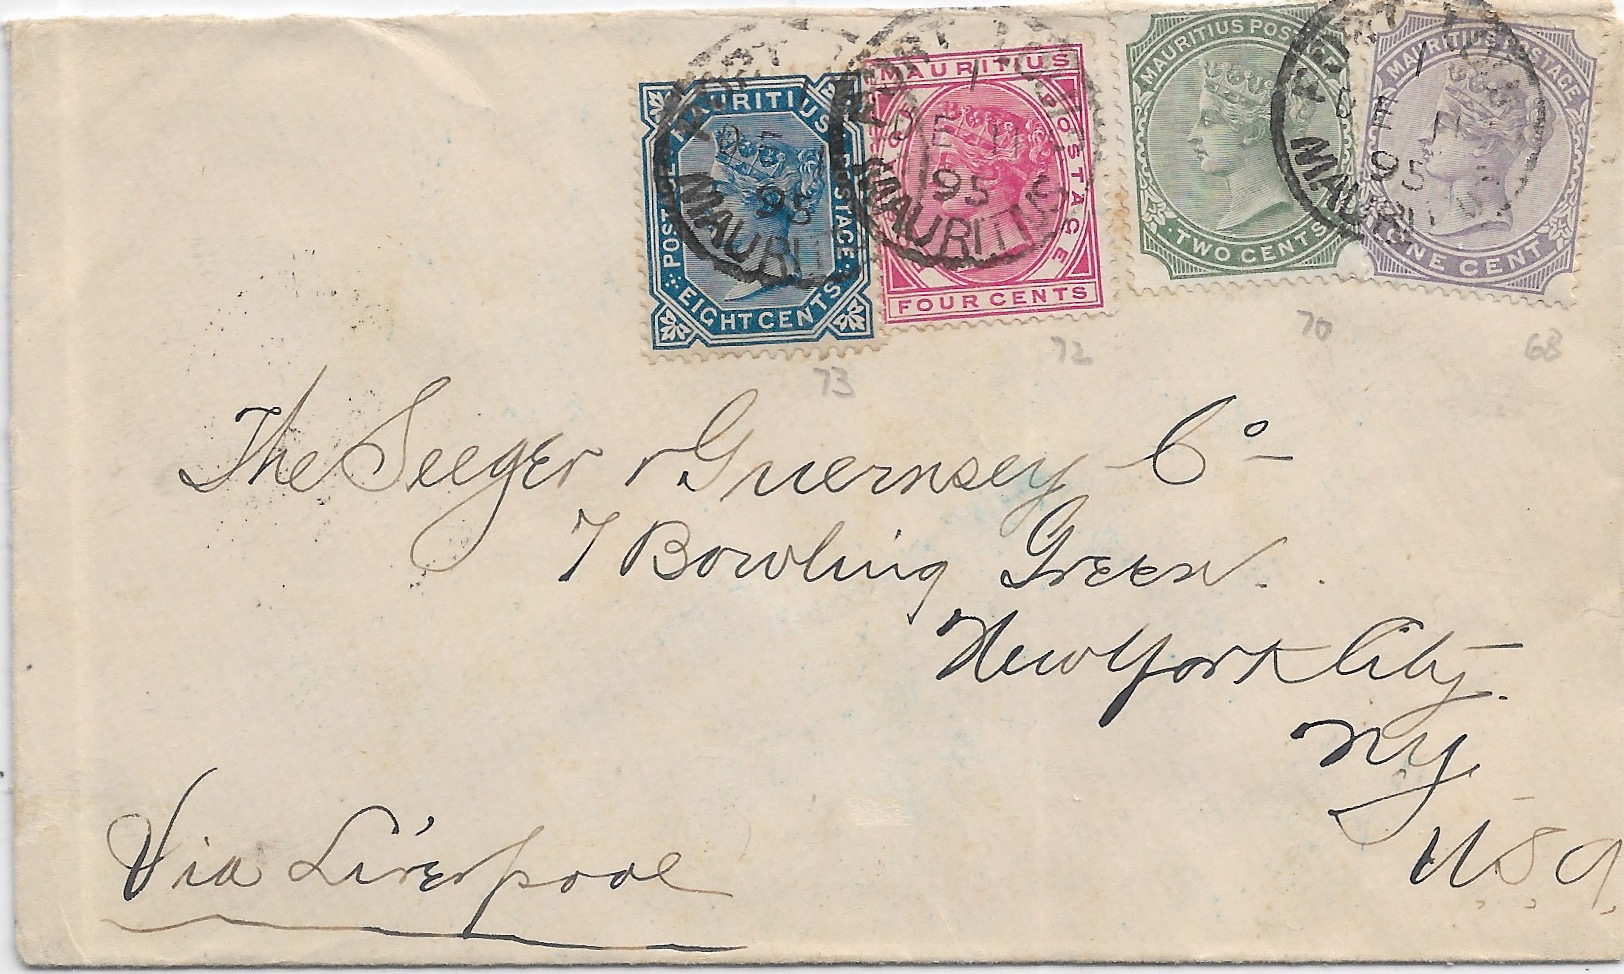 MAURITIUS
POSTAGE
POSTAGE
EIGHT CENTS
MAURITIUS
POSTAGE
FOUR CENTS
MAURITIUS POSTAGE
TWO CENTS
MAURITIUS POSTAGE
ONE CENT
PORT LOUIS
1
DE 11
95
MAURITIUS
73
72
70
68
The Seeger & Guernsey Co
7 Bowling Green.
New York City.
NY
U.S.A.
Via Liverpool